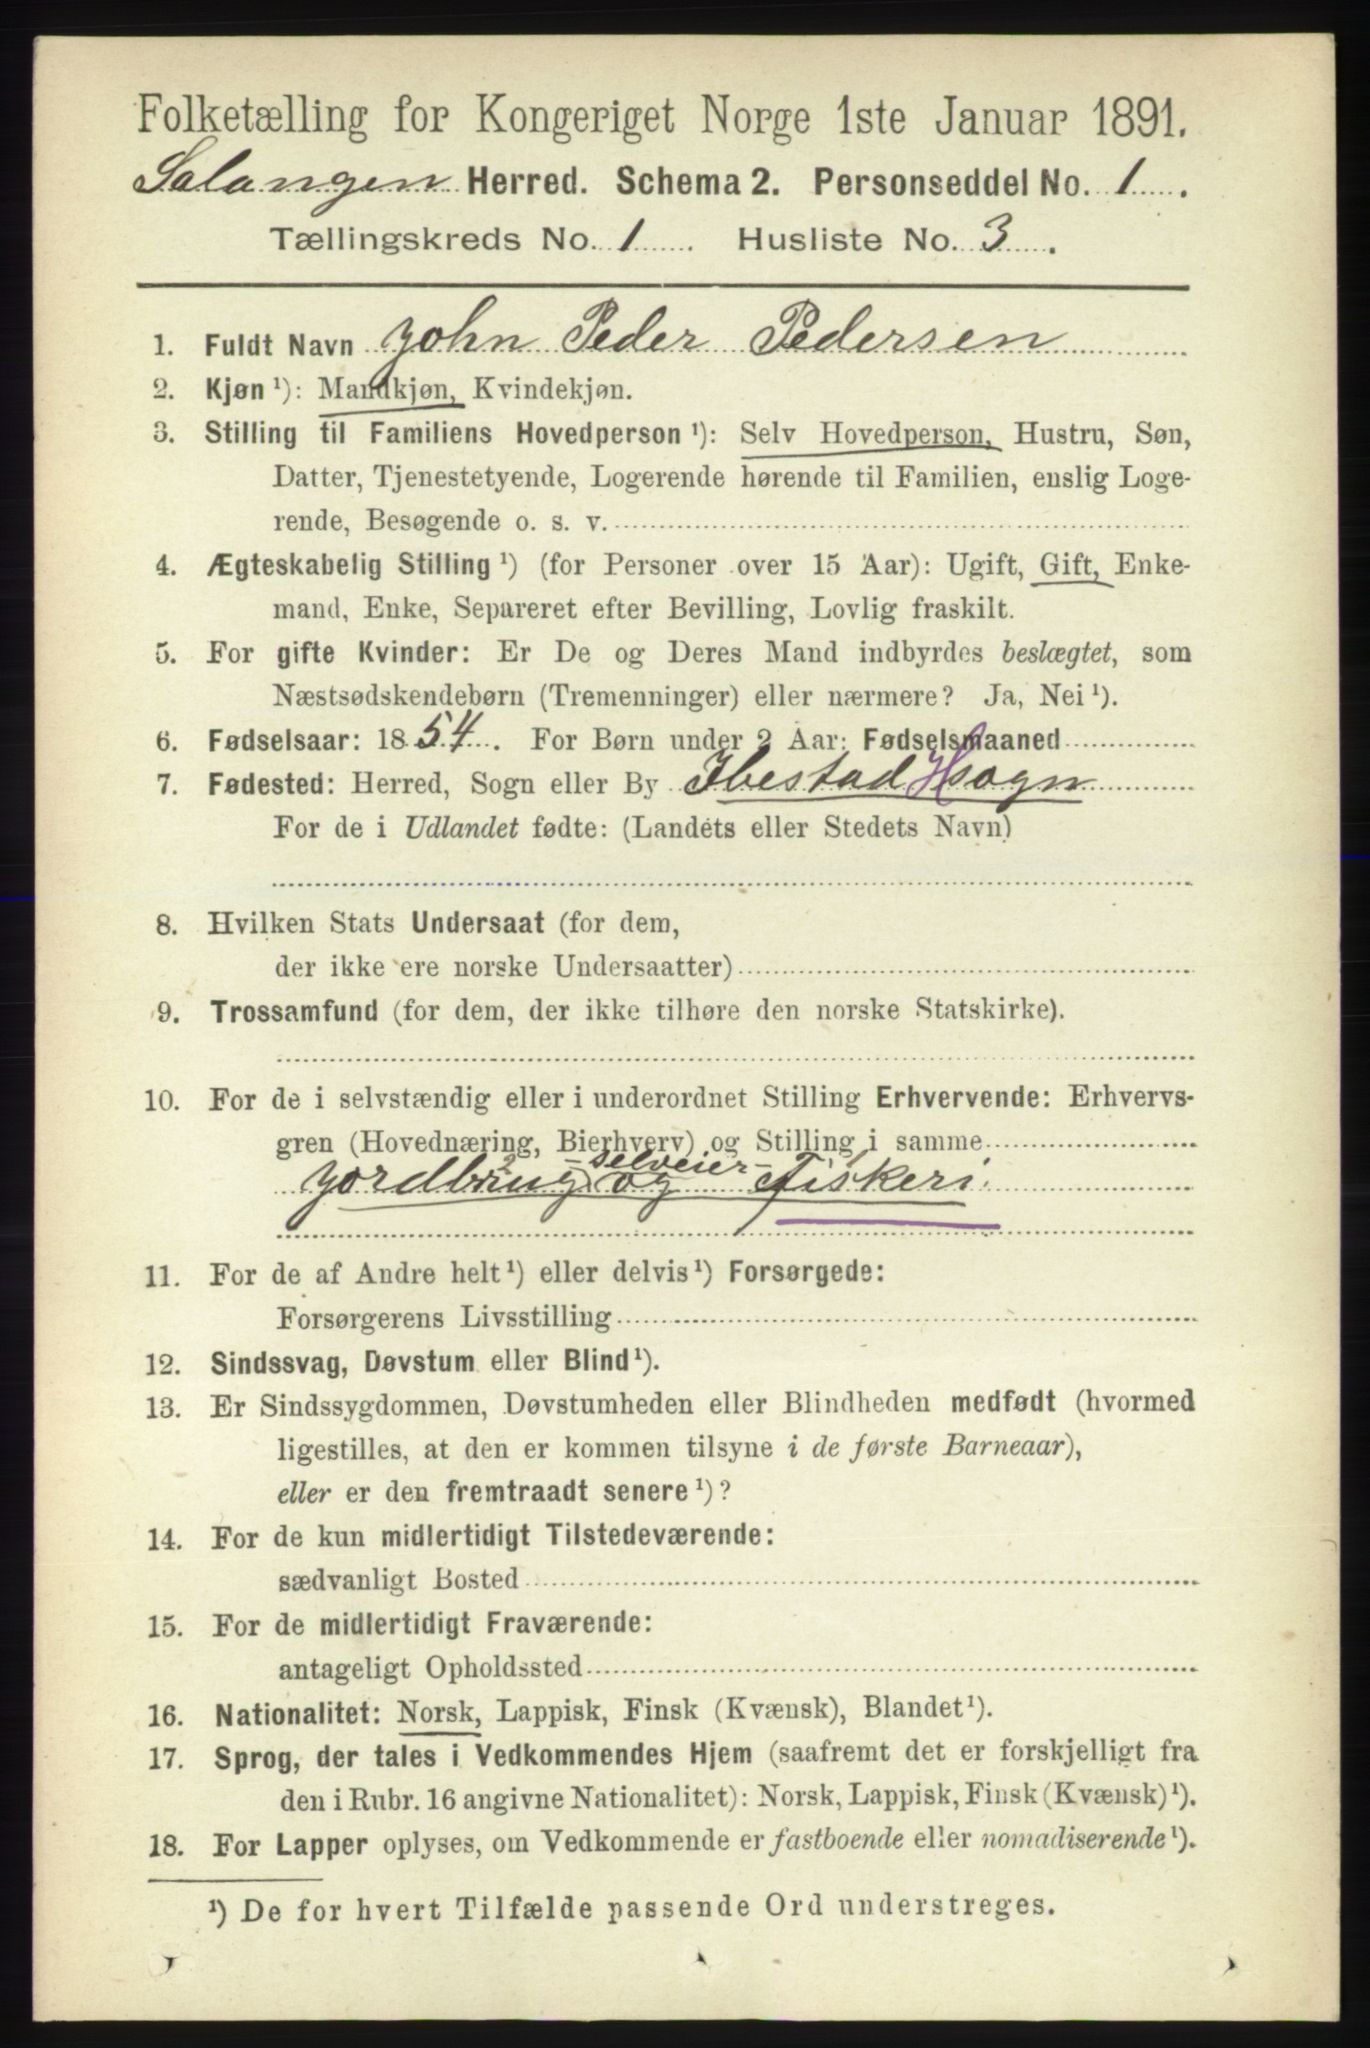 Folketælling for Kongeriget Norge 1ste Januar 1891.
Salangen Herred. Schema 2. Personseddel No. 1.
Tællingskreds No. 1. Husliste No. 3.
1. Fuldt Navn John Peder Pedersen
2. Kjøn ¹): Mandkjøn, Kvindekjøn.
3. Stilling til Familiens Hovedperson ¹): Selv Hovedperson, Hustru, Søn,
Datter, Tjenestetyende, Logerende hørende til Familien, enslig Loge-
rende, Besøgende o. s. v.
4. Ægteskabelig Stilling ¹) (for Personer over 15 Aar): Ugift, Gift, Enke-
mand, Enke, Separeret efter Bevilling, Lovlig fraskilt.
5. For gifte Kvinder: Er De og Deres Mand indbyrdes beslægtet, som
Næstsødskendebørn (Tremenninger) eller nærmere? Ja, Nei ¹).
6. Fødselsaar: 1854. For Børn under 2 Aar: Fødselsmaaned
7. Fødested: Herred, Sogn eller By Ibestad H sogn
For de i Udlandet fødte: (Landets eller Stedets Navn)
8. Hvilken Stats Undersaat (for dem,
der ikke ere norske Undersaatter)
9. Trossamfund (for dem, der ikke tilhøre den norske Statskirke).
10. For de i selvstændig eller i underordnet Stilling Erhvervende: Erhvervs-
gren (Hovednæring, Bierhverv) og Stilling i samme
-selveier-
Jordbrug og Fiskeri.
11. For de af Andre helt ¹) eller delvis ¹) Forsørgede:
Forsørgerens Livsstilling
12. Sindssvag, Døvstum eller Blind ¹).
13. Er Sindssygdommen, Døvstumheden eller Blindheden medfødt (hvormed
ligestilles, at den er kommen tilsyne i de første Barneaar),
eller er den fremtraadt senere ¹)?
14. For de kun midlertidigt Tilstedeværende:
sædvanligt Bosted
15. For de midlertidigt Fraværende:
antageligt Opholdssted
16. Nationalitet: Norsk, Lappisk, Finsk (Kvænsk), Blandet ¹).
17. Sprog, der tales i Vedkommendes Hjem (saafremt det er forskjelligt fra
den i Rubr. 16 angivne Nationalitet): Norsk, Lappisk, Finsk (Kvænsk) ¹).
18. For Lapper oplyses, om Vedkommende er fastboende eller nomadiserende ¹).
¹) De for hvert Tilfælde passende Ord understreges.